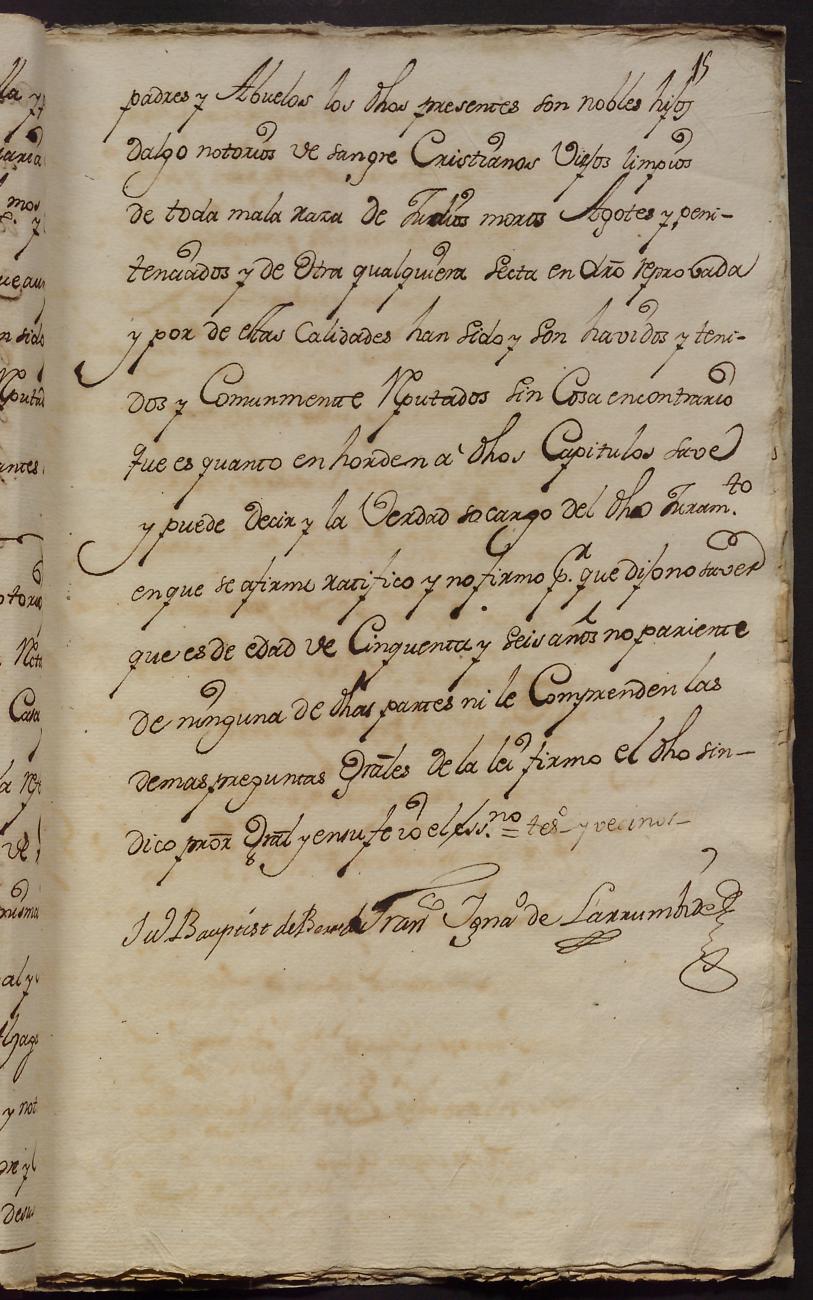 15
padres y Abuelos los dhos presentes son nobles hijos
dalgo notorios de sangre Cristianos Viejos limpios
de toda mala raza de Judios moros Agotes y peni-
tenciados y de otra qualquiera secta en dro reprobada
y por de estas Calidades han sido y son havidos y teni-
dos y Comunmente Rputados sin Cosa encontrario
que es quanto en horden a dhos Capitulos save
y puede decir y la Verdad so cargo del dho Juram.to
en que se afirmo ratifico y no firmo p.r que dijo no saver
que es de edad de Cinquenta y seis años no pariente
de ninguna de dhas partes ni le Comprenden las
demas preguntas Grales de la lei firmo el dho sin-
dico pror Gral y en su fe io el ess.no = tes - y vecinos -
Ju Bauptist de Franco Igno de Larrumbide